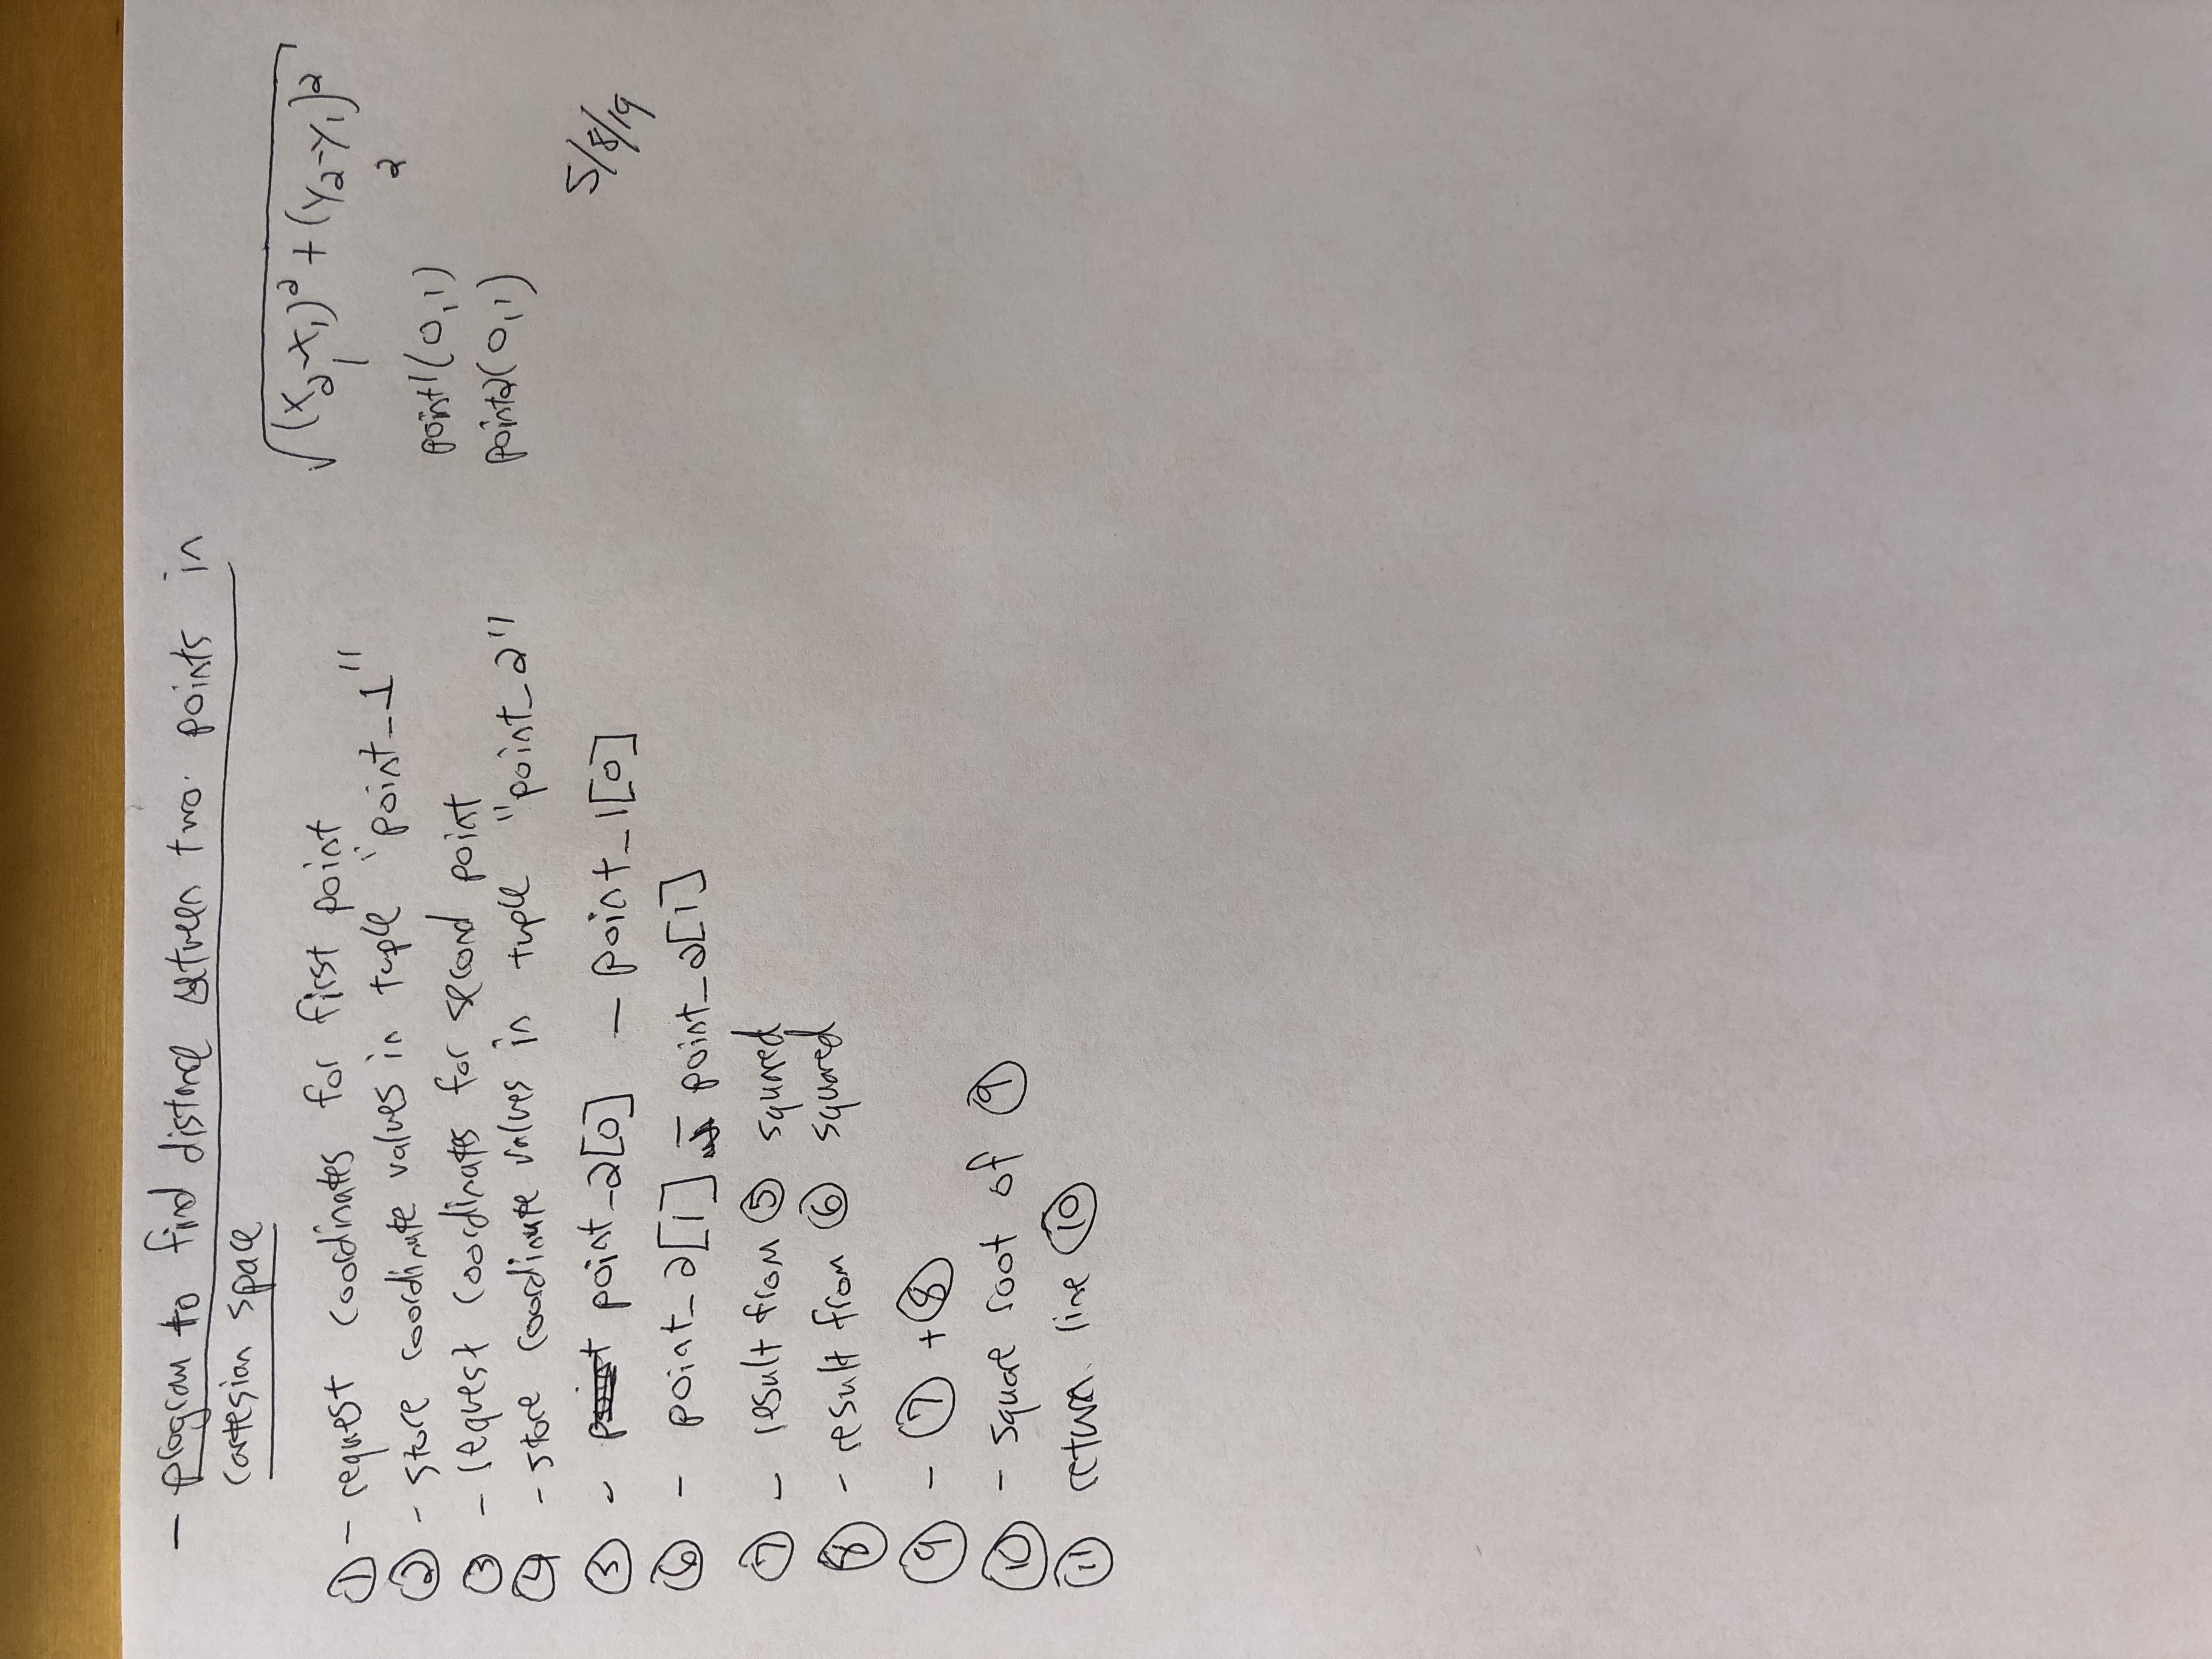 - program to find distance between two points in
cartesian space
① - request coordinates for first point
② - store coordinate values in tuple "point_1"
③ - request coordinates for second point
④ - store coordinate values in tuple "point_2"
⑤ - point_2[0] - point_1[0]
⑥ - point_2[1] - point_2[1]
⑦ - result from ⑤ squared
⑧ - result from ⑥ squared
⑨ - ⑦ + ⑧
⑩ - square root of ⑨
⑪ return line ⑩
√(x₂-x₁)² + (y₂-y₁)²
1
2
point1(0,1)
point2(0,1)
5/8/19